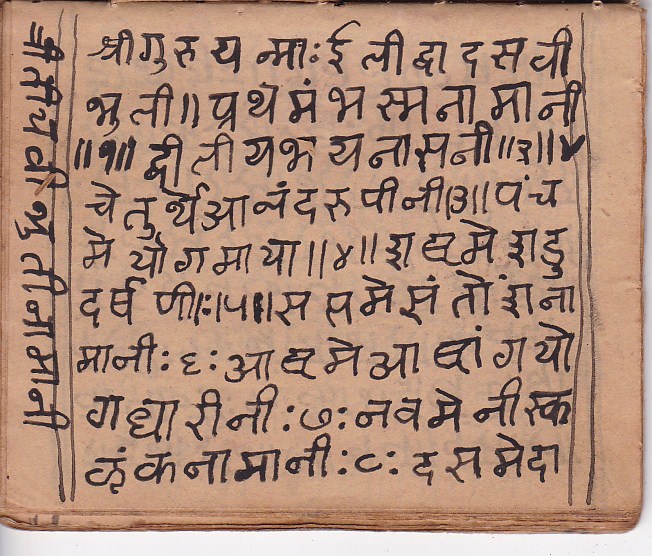 श्री गुरु य न्माः ई ली द्वा द स वी
भु ती॥ प्रथ मं भ स्म ना मा नी
॥१॥ द्वी ती य भ य ना स नी॥३॥४
चे तु र्थे आ नं द रु पी नी।३॥ पं च
मे यो ग मा या॥४॥
द र्ष णी।:।५॥ स प्त मे सं तों श ना
मा नी : ६ : आ ष्ट मे आ ष्टां ग यो
ग धा री नी : ७ : न व मे नी स्क
ळं क ना मा नी : ८ : द स मे दा